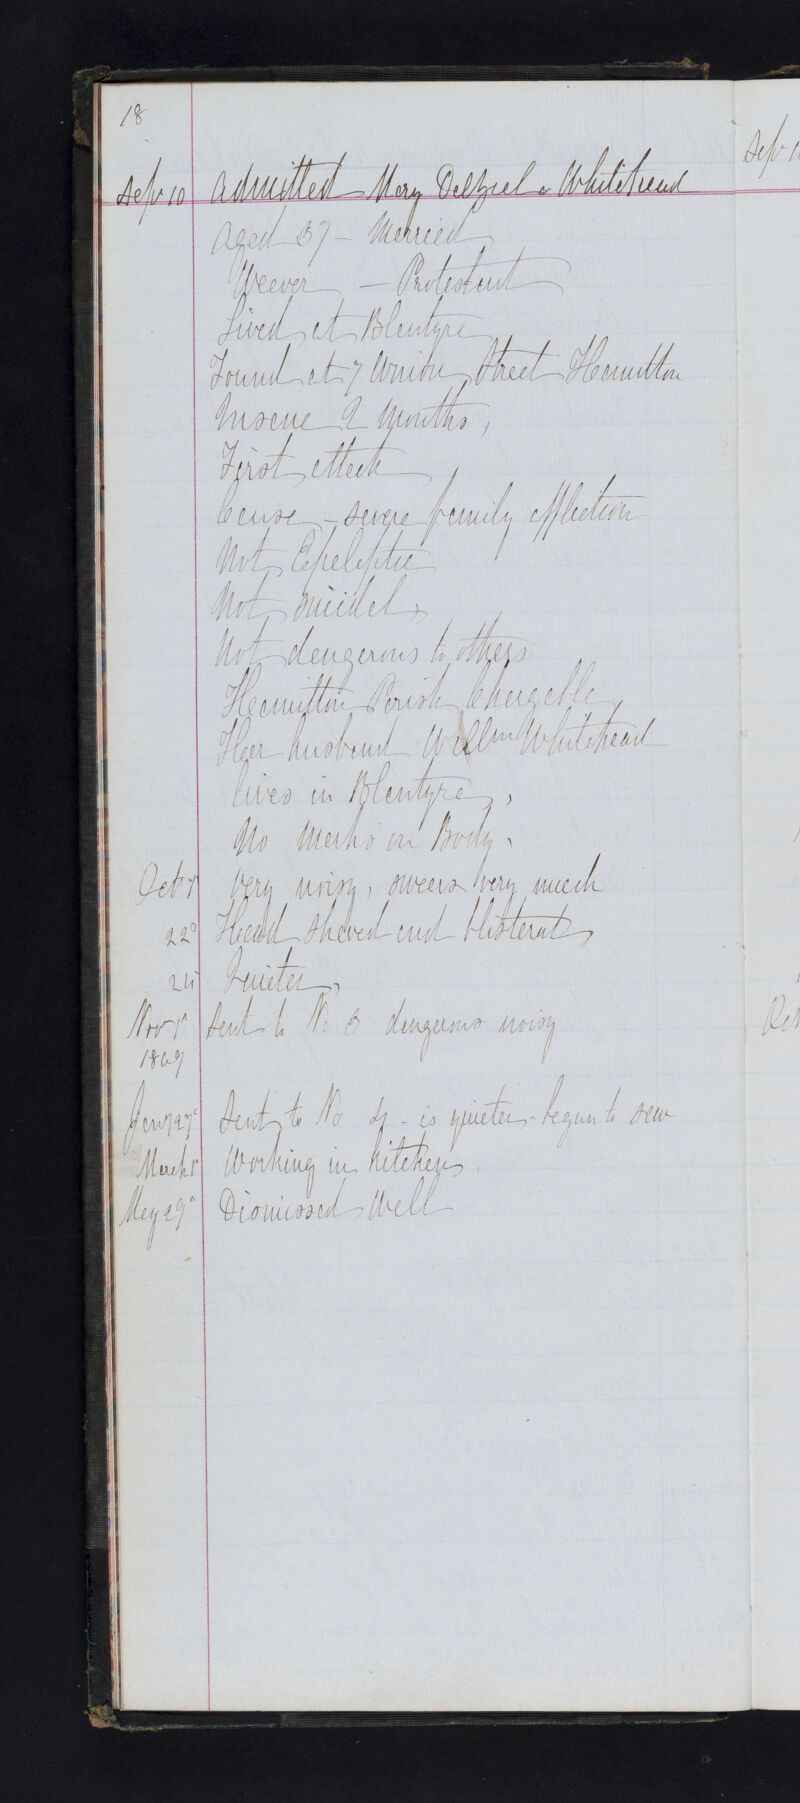 18
Sep 10 Admitted Mary Dalziel or Whitehead
Aged 37 – Married
Weaver – Protestant
Lived at Blantyre
Found at 7 Union Street Hamilton
Insane 2 Months,
First attack
Cause – severe family affliction
Not Epileptic
Not suicidal,
Not dangerous to others
Hamilton Parish Chargeable
Her husband Willm Whitehead
lives in Blantyre,
No Marks on Body.
Oct 1st Very noisy, swears very much
22d Head shaved and blistered,
25 Quieter,
Nov 1st Sent to No 3 dangerous noisy
1869
Jany 27 Sent to No 4 - is quieter - begun to sew
March 1st Working in kitchen.
May 29th Dismissed Well
Sep
Oct